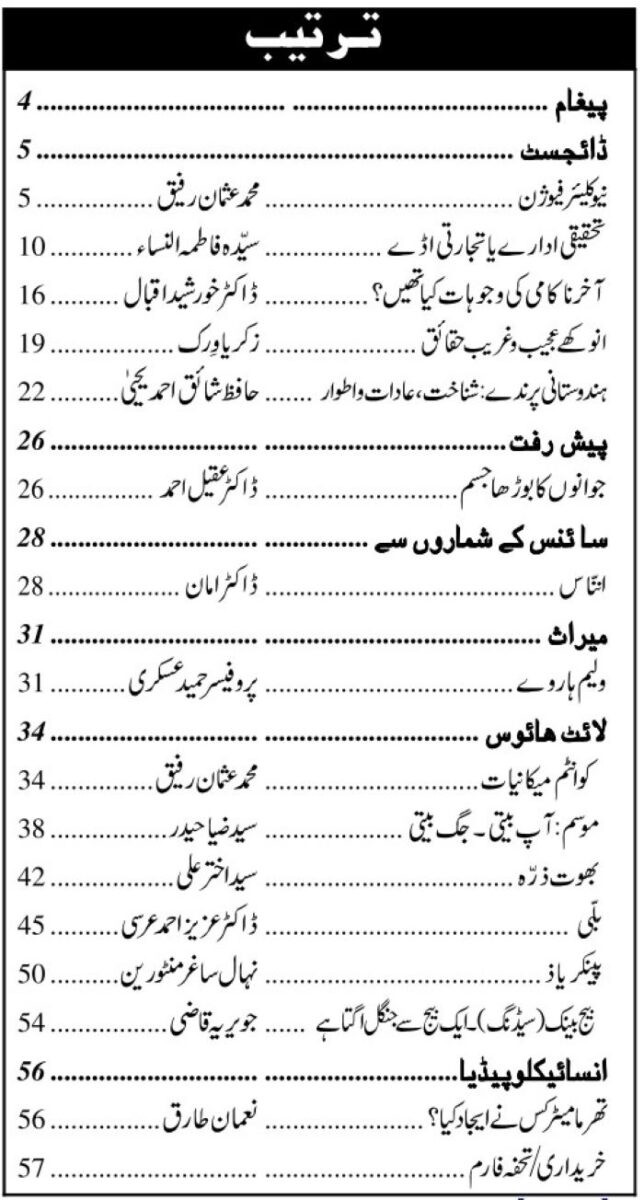 ترتیب
پیغام ........................ 4
ڈائجسٹ ........................ 5
نیوکلیئر فیوژن ............ محمد عثمان رفیق ............ 5
تحقیقی ادارے یا تجارتی اڈے ............ سیّدہ فاطمہ النساء ............ 10
آخر ناکامی کی وجوہات کیا تھیں؟ ............ ڈاکٹر خورشید اقبال ............ 16
انوکھے عجیب و غریب حقائق ............ زکریا وِرک ............ 19
ہندوستانی پرندے: شناخت، عادات و اطوار ...... حافظ شائق احمد یحییٰ ............ 22
پیش رفت ........................ 26
جوانوں کا بوڑھا جسم ............ ڈاکٹر عقیل احمد ............ 26
سائنس کے شماروں سے ........................ 28
انّناس ............ ڈاکٹر امان ............ 28
میراث ........................ 31
ولیم ہاروے ............ پروفیسر حمید عسکری ............ 31
لائٹ ھائوس ........................ 34
کوانٹم میکانیات ............ محمد عثمان رفیق ............ 34
موسم: آپ بیتی ۔ جگ بیتی ............ سید ضیا حیدر ............ 38
بھوت ذرّہ ............ سید اختر علی ............ 42
بلّی ............ ڈاکٹر عزیز احمد عرسی ............ 45
پینکریاذ ............ نہال ساغر منٹورین ............ 50
بیج بینک (سیڈنگ)۔ ایک بیج سے جنگل اگتا ہے ...... جویریہ قاضی ............ 54
انسائیکلوپیڈیا ........................ 56
تھرمامیٹر کس نے ایجاد کیا؟ ............ نعمان طارق ............ 56
خریداری/تحفہ فارم ........................ 57